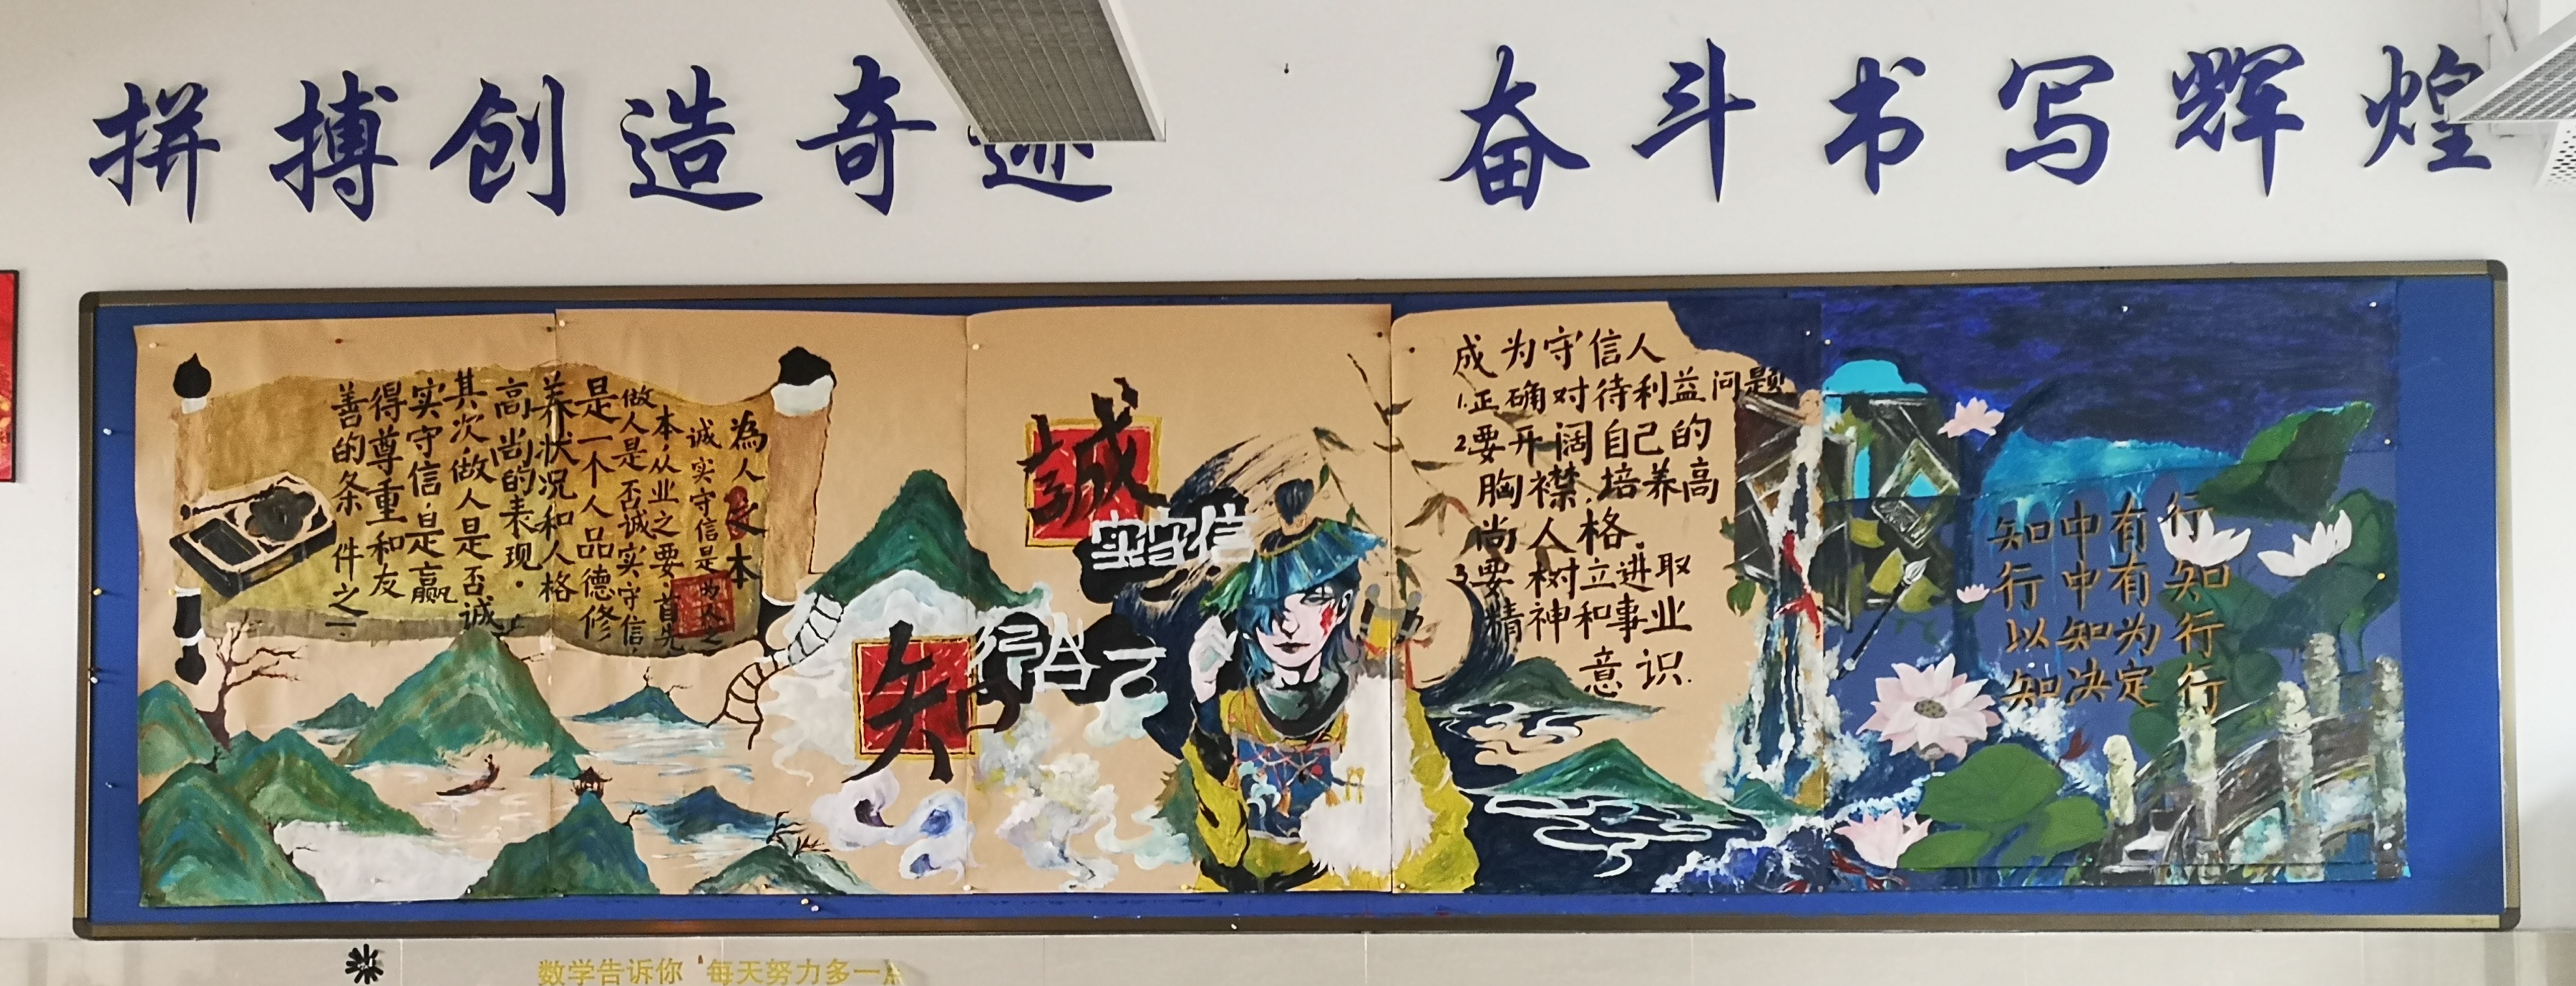 拼搏创造奇迹
奋斗书写辉煌
為人之本
诚实守信是
本.从业之要.首先
做人是否诚实守信,
是一个人品德修
养状况和人格
高尚的表现.
其次做人是否诚
实守信,是赢
得尊重和友
善的条件之一.
誠
实守信
知行合一
成为守信人
1.正确对待利益问题
2.要开阔自己的
胸襟.培养高
尚人格.
3.要树立进取
精神和事业
意识.
知中有行
行中有知
以知为行
知决定行
数学告诉你 每天努力多一